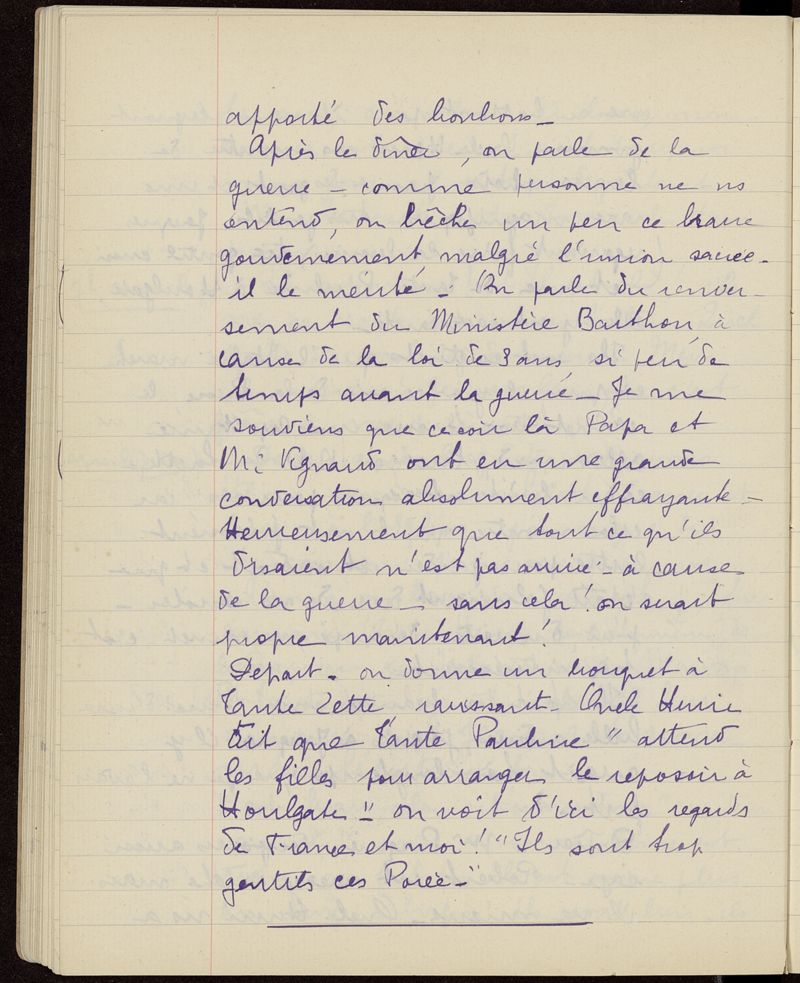 apporté des bonbons –
Après le dîner, on parle de la
guerre – comme personne ne ns
entend, on bêche un peu ce brave
gouvernement malgré l'union sacrée –
il le mérite – On parle du renver-
sement du Ministère Barthou, à
cause de la loi de 3 ans, si peu de
temps avant la guerre – Je me
souviens que ce soir là Papa et
Mr Vignaud ont eu une grande
conversation absolument effrayante –
Heureusement que tout ce qu'ils
disaient n'est pas arrivé – à cause
de la guerre – sans cela ! on serait
propre maintenant !
Départ – on donne un bouquet à
Tante Zette, ravissant – Oncle Henri
dit que Tante Pauline " attend
les filles pour arranger le reposoir à
Houlgate " on voit d'ici les regards
de France et moi ! " Ils sont trop
gentils ces Porée – "